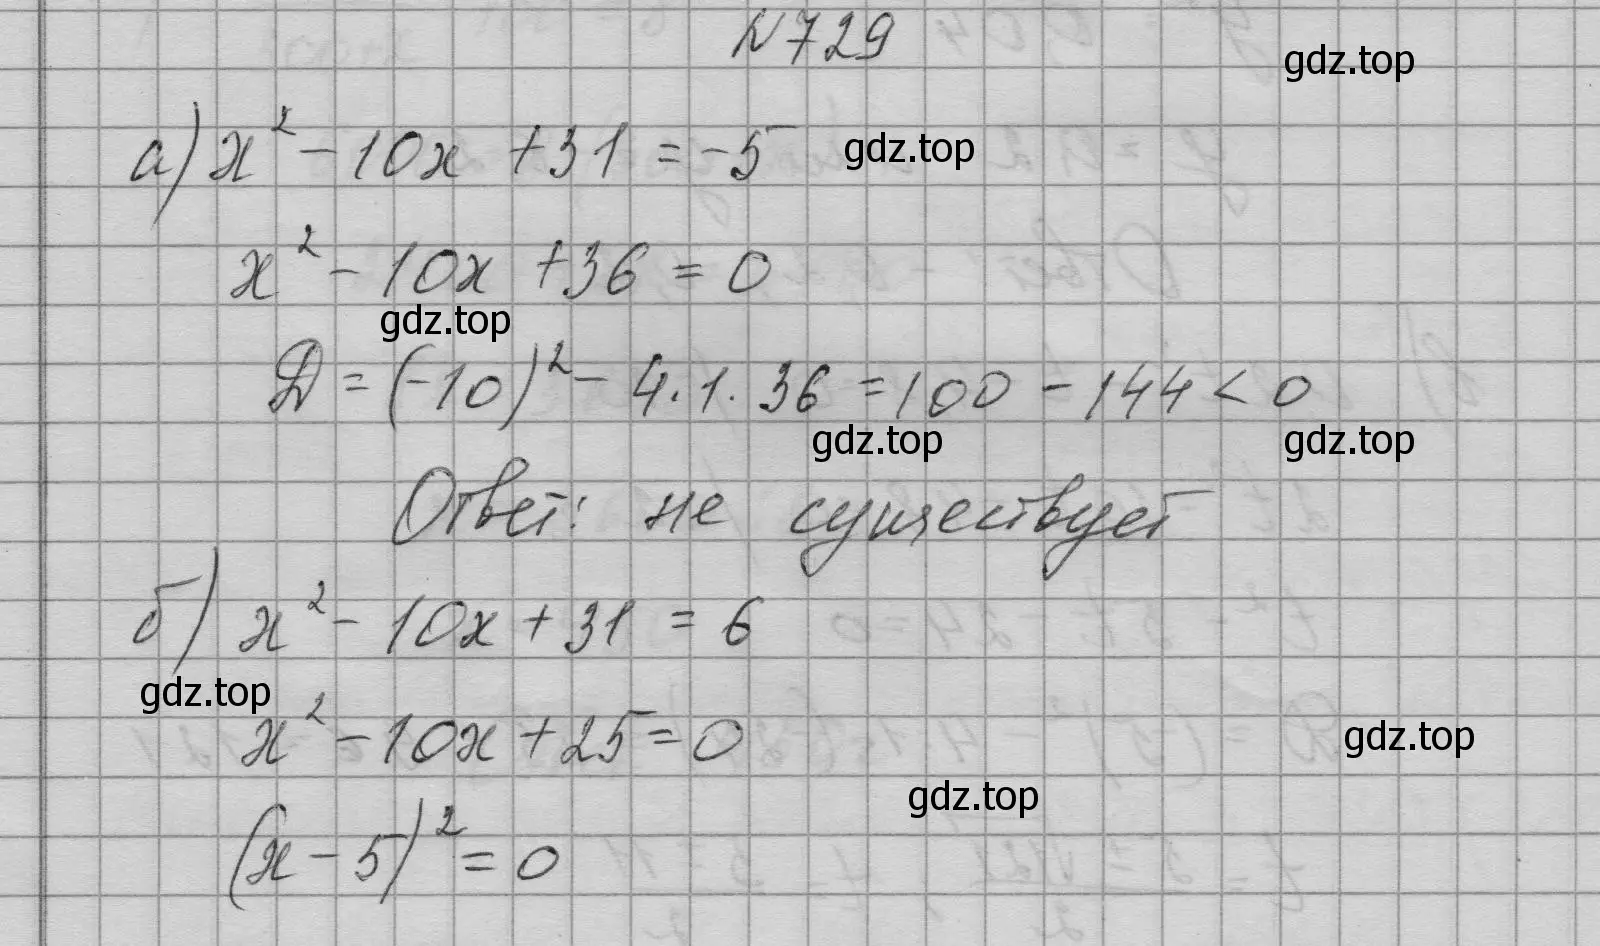 №729
gdz.top
а) x² - 10x + 31 = -5 gdz.top
x² - 10x + 36 = 0
gdz.top
D = (-10)² - 4·1·36 = 100 - 144 < 0
gdz.top gdz.top
Ответ: не существует
б) x² - 10x + 31 = 6
gdz.top
x² - 10x + 25 = 0 gdz.top
gdz.top
(x - 5)² = 0